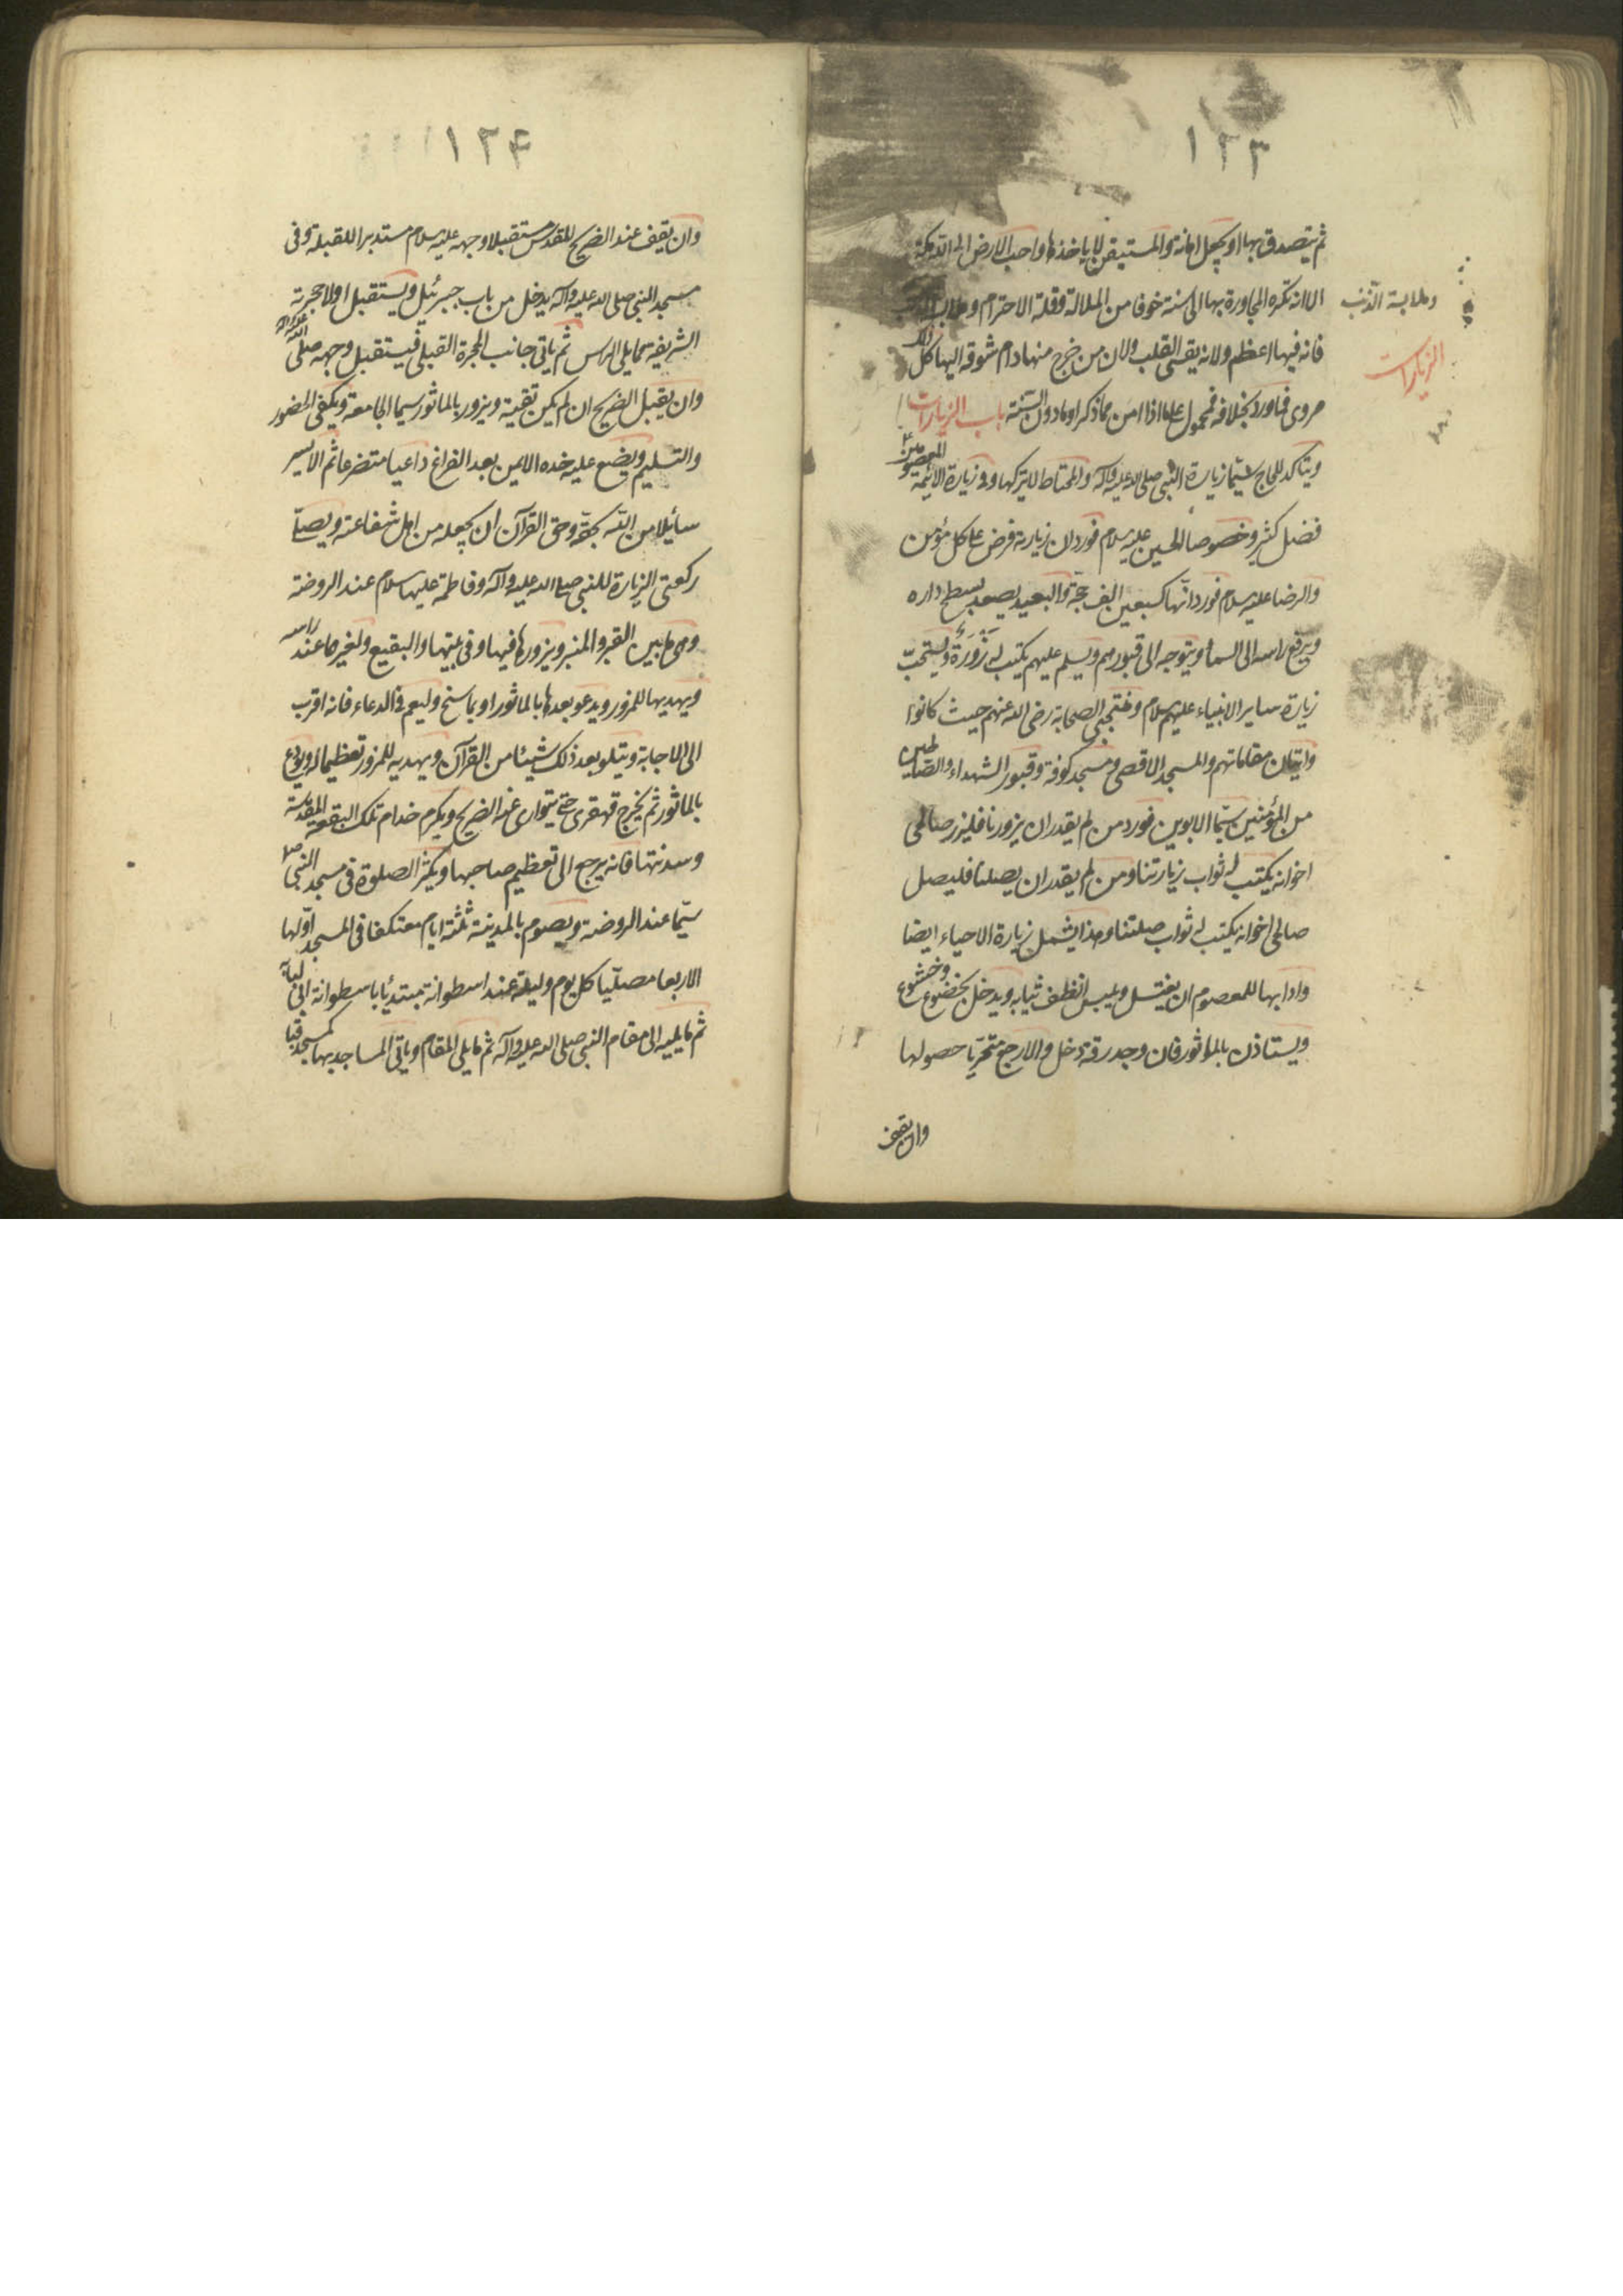 ١٢٣
ثم يتصدق بها او يجعل امانة والمستيقن لا ياخذها واحب الارض الى الله مكة
الا انه تكره المجاورة بها الى سنة خوفا من الملالة وقلة الاحترام وملابسة الذنب
وملابسة الذنب
فانه فيها اعظم ولانه يقسى القلب ولان من خرج منها دام شوقه اليها كل ذلك
الزيارات
مروى فما ورد بخلافه فمحمول على ما اذا امن مما ذكر او مادون السنة باب الزيارات
ويتاكد للحاج سيما زيارة النبى صلى الله عليه وآله والمحتاط لا يتركها وفى زيارة الائمة المعصومين ع
فضل كثير وخصوصا الحسين عليه سلام فورد ان زيارته فرض على كل مؤمن
والرضا عليه سلام فورد انها كسبعين الف حجة والبعيد يصعد سطح داره
ويرفع راسه الى السماء ويتوجه الى قبورهم ويسلم عليهم يكتب له زَوْرَةٌ ويستحبّ
زيارة ساير الانبياء عليهم سلام ومنتجبى الصحابة رضى الله عنهم حيث كانوا
واتيان مقاماتهم والمسجد الاقصى ومسجد كوفة وقبور الشهداء والصالحين
من المؤمنين سيّما الابوين فورد من لم يقدر ان يزورنا فليزر صالحى
اخوانه يكتب له ثواب زيارتنا ومن لم يقدر ان يصلنا فليصل
صالحى اخوانه يكتب له ثواب صلتنا وهذا يشمل زيارة الاحياء ايضا
وادابها للمعصوم ان يغتسل ويلبس انظف ثيابه ويدخل بخضوع وخشوع
ويستاذن بالماثور فان وجد رقة دخل والا رجع متحرّيا حصولها
وان يقف
١٢۴
وان يقف عند الضريح المقدس مستقبلا وجهه عليه سلام مستدبرا للقبلة وفى
مسجد النبى صلى الله عليه وآله يدخل من باب جبرئيل ويستقبل اولا حجرته
الشريفة مما يلى الراس ثم ياتى جانب الحجرة القبلى فيستقبل وجهه صلى الله عليه وآله
وان يقبل الضريح ان لم يكن تقية ويزور بالماثور سيما الجامعة ويكفى الحضور
والتسليم ويضع عليه خده الايمن بعد الفراغ داعيا متضرعا ثم الايسر
سائلا من الله بحقه وحق القرآن ان يجعله من اهل شفاعته ويصلّى
ركعتى الزيارة للنبى صلى الله عليه وآله وفاطمة عليها سلام عند الروضة
وهى ما بين القبر والمنبر ويزورها فيها وفى بيتها والبقيع ولغيرهما عند راسه
ويهديها للمزور ويدعو بعدها بالماثور او بما سنح وليعم فى الدعاء فانه اقرب
الى الاجابة ويتلو بعد ذلك شيئا من القرآن ويهديه للمزور تعظيما له ويودع
بالماثور ثم يخرج قهقرى حتى يتوارى عنه الضريح ويكرم خدام تلك البقعة المقدسة
وسدنتها فانه يرجع الى تعظيم صاحبها ويكثر الصلوة فى مسجد النبى ص
سيّما عند الروضة ويصوم بالمدينة ثلثة ايام معتكفا فى المسجد اوّلها
الاربعا مصلّيا كل يوم وليلة عند اسطوانة مبتدئا باسطوانة ابى لبابة
ثم ما يليه الى مقام النبى صلى الله عليه وآله ثم ما يلى المقام وياتى المساجد بها كمسجد قبا